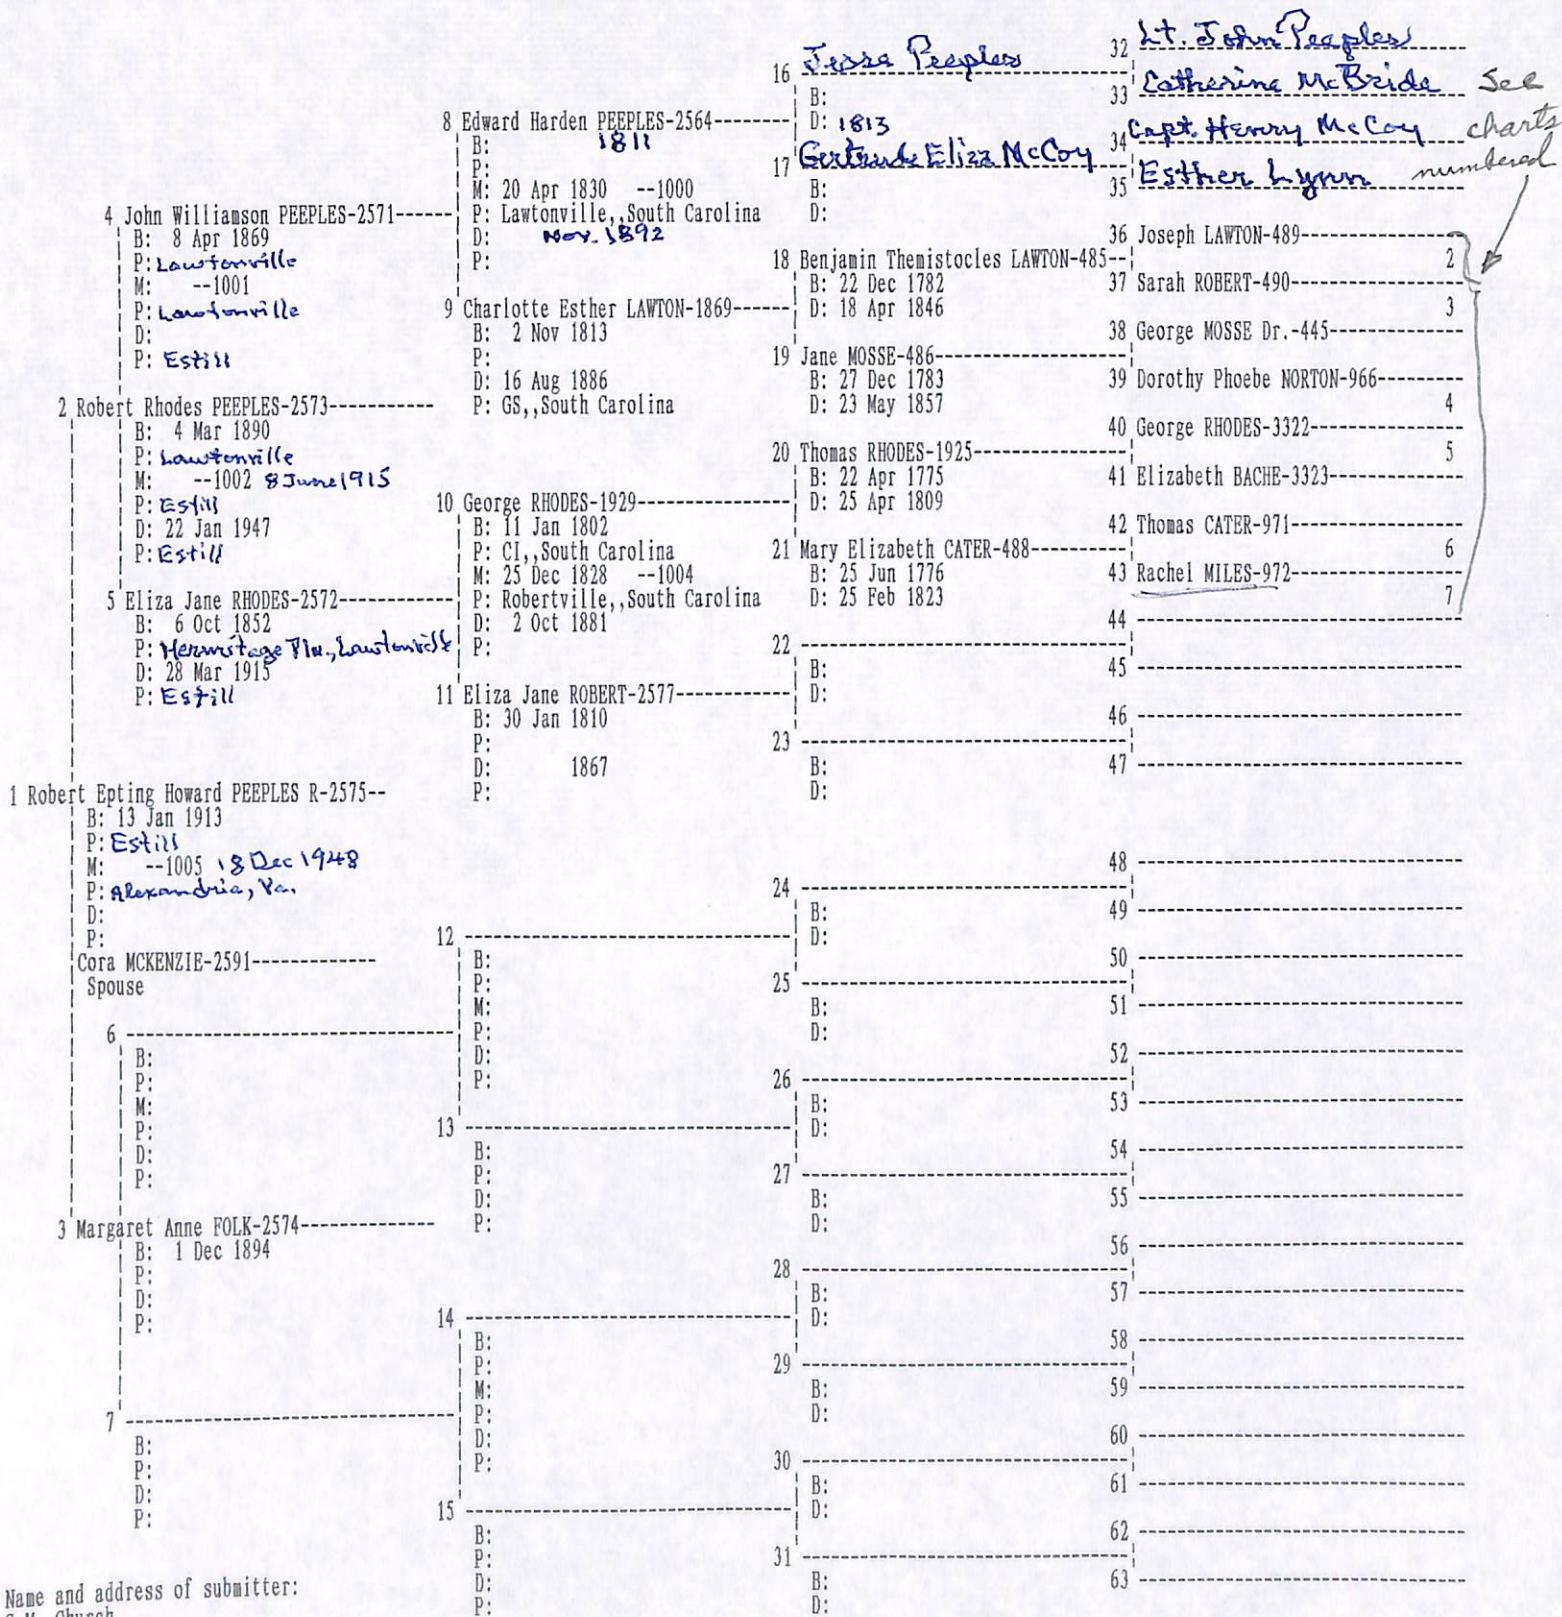 1 Robert Epting Howard PEEPLES R-2575--
B: 13 Jan 1913
P: Estill
M: --1005 18 Dec 1948
P: Alexandria, Va.
D:
P:
Cora MCKENZIE-2591-------------
Spouse
2 Robert Rhodes PEEPLES-2573-----------
B: 4 Mar 1890
P: Lawtonville
M: --1002 8 June 1915
P: Estill
D: 22 Jan 1947
P: Estill
3 Margaret Anne FOLK-2574--------------
B: 1 Dec 1894
P:
D:
P:
4 John Williamson PEEPLES-2571------
B: 8 Apr 1869
P: Lawtonville
M: --1001
P: Lawtonville
D:
P: Estill
5 Eliza Jane RHODES-2572------------
B: 6 Oct 1852
P: Hermitage Pln., Lawtonville
D: 28 Mar 1915
P: Estill
6
B:
P:
M:
P:
D:
P:
7
B:
P:
D:
P:
8 Edward Harden PEEPLES-2564--------
B: 1811
P:
M: 20 Apr 1830 --1000
P: Lawtonville,,South Carolina
D: Nov. 1892
P:
9 Charlotte Esther LAWTON-1869------
B: 2 Nov 1813
P:
D: 16 Aug 1886
P: GS,,South Carolina
10 George RHODES-1929---------------
B: 11 Jan 1802
P: CI,,South Carolina
M: 25 Dec 1828 --1004
P: Robertville,,South Carolina
D: 2 Oct 1881
P:
11 Eliza Jane ROBERT-2577-----------
B: 30 Jan 1810
P:
D: 1867
P:
12
B:
P:
M:
P:
D:
P:
13
B:
P:
D:
P:
14
B:
P:
M:
P:
D:
P:
15
B:
P:
D:
P:
16 Jesse Peeples
B:
D: 1813
17 Gertrude Eliza McCoy
B:
D:
18 Benjamin Themistocles LAWTON-485--
B: 22 Dec 1782
D: 18 Apr 1846
19 Jane MOSSE-486--------------------
B: 27 Dec 1783
D: 23 May 1857
20 Thomas RHODES-1925----------------
B: 22 Apr 1775
D: 25 Apr 1809
21 Mary Elizabeth CATER-488----------
B: 25 Jun 1776
D: 25 Feb 1823
22
B:
D:
23
B:
D:
24
B:
D:
25
B:
D:
26
B:
D:
27
B:
D:
28
B:
D:
29
B:
D:
30
B:
D:
31
B:
D:
32 Lt. John Peeples
33 Catherine McBride
34 Capt. Henry McCoy
35 Esther Lynn
See
charts
numbered
36 Joseph LAWTON-489----------------
2
37 Sarah ROBERT-490-----------------
3
38 George MOSSE Dr.-445-------------
39 Dorothy Phoebe NORTON-966--------
4
40 George RHODES-3322---------------
5
41 Elizabeth BACHE-3323-------------
42 Thomas CATER-971-----------------
6
43 Rachel MILES-972-----------------
7
44
45
46
47
48
49
50
51
52
53
54
55
56
57
58
59
60
61
62
63
Name and address of submitter: